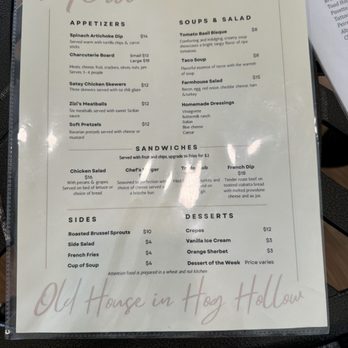 APPETIZERS
Spinach Artichoke Dip $14
Served warm with tortilla chips, & carrot
sticks
Charcuterie Board Small $12
Large $18
Meats, cheese, fruit, crackers, olives, nuts, jam
Serves 3-4 people
Satay Chicken Skewers $12
Three skewers served with
Zizi's Meatballs $12
Six meatballs served with sweet Serbian
sauce
Soft Pretzels $12
Bavarian pretzels served with cheese or
mustard
SOUPS & SALAD
Tomato Basil Bisque $8
Comforting and indulging, creamy soup
showcases a bright, tangy flavor of ripe
tomatoes
Taco Soup $8
Flavorful essence of tacos with the warmth
of soup
Farmhouse Salad $15
Bacon, egg, red onion, cheddar cheese, ham
& turkey
Homemade Dressings
Vinaigrette
Buttermilk ranch
Italian
Blue cheese
Caesar
SANDWICHES
Served with fruit and chips, upgrade to fries for $3
Chicken Salad
$16
With pecans & grapes
Served on bed of lettuce or
choice of bread
Chef's
Seasoned to perfection with
choice of cheese served
a brioche bun
French Dip
$18
Tender roast beef on
toasted ciabatta bread
with melted provolone
cheese and au jus
SIDES
Roasted Brussel Sprouts $10
Side Salad $4
French Fries $4
Cup of Soup $4
DESSERTS
Crepes $12
Vanilla Ice Cream $3
Orange Sherbet $3
Dessert of the Week Price varies
Attention: food is prepared in a wheat and nut kitchen
Old House in Hog Hollow